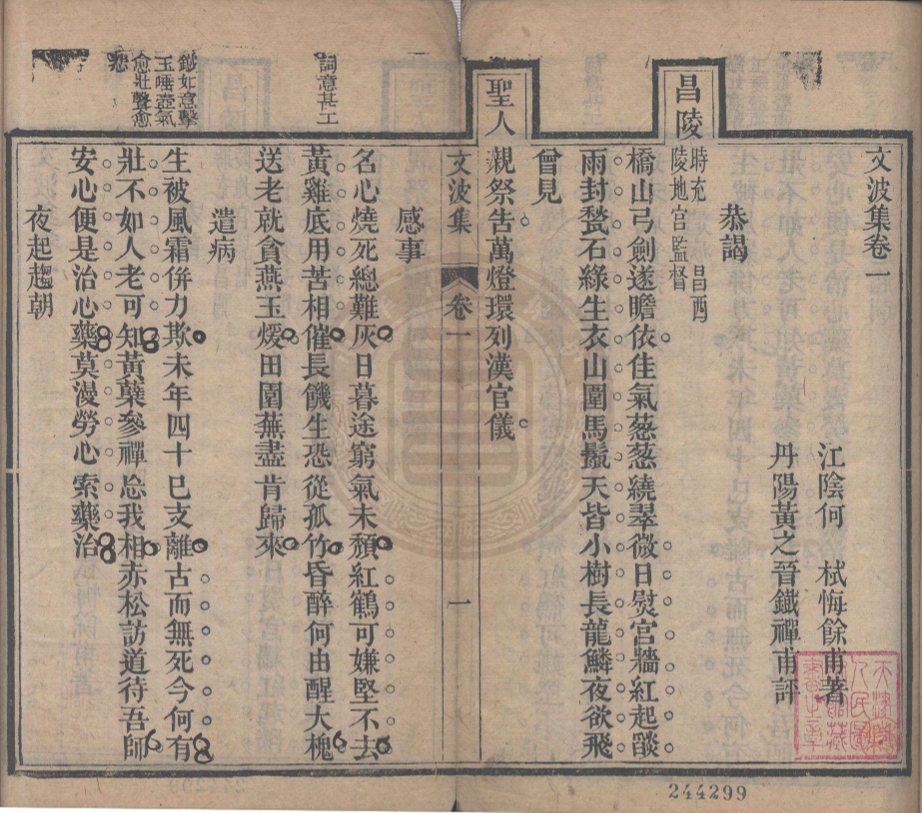 文波集卷一
江陰何 栻悔餘甫著
丹陽黃之晉鐵禪甫評
恭謁
昌陵時充 昌西陵地宮監督
橋山弓劍遂瞻依佳氣葱葱繞翠微日熨宮牆紅起燄
雨封甃石綠生衣山圍馬鬛天皆小樹長龍鱗夜欲飛
曾見
聖人親祭告萬燈環列漢官儀
文波集 卷一 一
感事
詞意甚工
名心燒死總難灰日暮途窮氣未頽紅鶴可嫌堅不去
黃雞底用苦相催長饑生恐從孤竹昏醉何由醒大槐
送老就貪燕玉煖田園蕪盡肯歸來
遣病
鐵如意擊
玉唾壺氣
愈壯聲愈
悲
生被風霜併力欺未年四十已支離古而無死今何有
壯不如人老可知黃蘗參禪忩我相赤松訪道待吾師
安心便是治心藥莫漫勞心索藥治
夜起趨朝
天津市人民圖書館藏書之章
244299